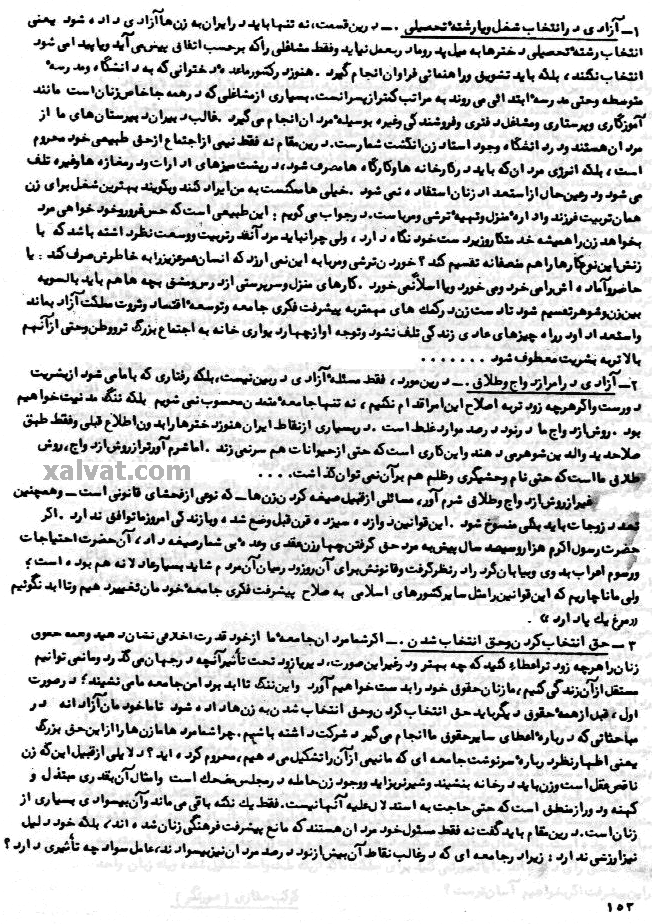 ۱- آزادی در انتخاب شغل ویا رشته تحصیلی .ــ درین قسمت، نه تنها باید در ایران به زن ها آزادی داده شود یعنی
انتخاب رشته تحصیلی دخترها به میل پدر و مادر بعمل نیاید و فقط مشاغلی را که برحسب اتفاق پیش می آید ویا پیدا می شود
انتخاب نکنند، بلکه باید تشویق و راهنمائی فراوان انجام گیرد . هنوز در کشور ما عده دخترانی که به دانشگاه و مدرسه
متوسطه وحتی مدرسه ابتدائی می روند به مراتب کمتر از پسرانست. بسیاری از مشاغلی که در همه جا خاص زنان است مانند
آموزگاری وپرستاری ومشاغل دفتری وفروشندگی وغیره بوسیله مردان انجام می گیرد . غالب دبیران دبیرستان های ما از
مردان هستند و در دانشگاه وجود استاد زن انگشت شمارست. درین مقام نه فقط نیمی از اجتماع از حق طبیعی خود محروم
است ، بلکه انرژی مردان که باید در کارخانه ها وکارگاه ها مصرف شود، در پشت میزهای ادارات ودر مغازه ها وغیره تلف
می شود ودر عین حال از استعداد زنان استفاده نمی شود . خیلی ها ممکنست به من ایراد کنند وبگویند بهترین شغل برای زن
همان تربیت فرزند واداره منزل وتهیه ترشی ومرباست. در جواب می گویم : این طبیعی است که حس غرور وخودخواهی مرد
بخواهد زن را همیشه خدمتگار وزیر دست خود نگاه دارد ، ولی چرا نباید مرد آنقدر تربیت ووسعت نظر داشته باشد که با
زنش این نوع کارها را هم منصفانه تقسیم کند ؟ خوردن ترشی ومربا به این نمی ارزد که انسان عمر عزیز را به خاطرش صرف کند : یا
حاضر وآماده اش را می خرد ومی خورد ویا اصلا نمی خورد . کارهای منزل وسرپرستی از درس ومشق بچه ها هم باید بالسویه
بین زن وشوهر تقسیم شود تا دست زن در کمک های مهمتر به پیشرفت فکری جامعه وتوسعه اقتصاد وثروت مملکت آزاد بماند
واستعداد او در راه چیزهای عادی زندگی تلف نشود وتوجه او از چهار دیواری خانه به اجتماع بزرگ تر ووطن وحتی از آنهم
بالاتر به بشریت معطوف شود . . . . . . .
۲- آزادی در امر ازدواج وطلاق .ــ درین مورد، فقط مسئله آزادی در بین نیست، بلکه رفتاری که با ما می شود از بشریت
دورست واگر هرچه زودتر به اصلاح این امر اقدام نکنیم ، نه تنها جامعه متمدن محسوب نمی شویم بلکه ننگ مدنیت خواهیم
بود . روش ازدواج ما در نود درصد موارد غلط است . در بسیاری از نقاط ایران هنوز دخترها را بدون اطلاع قبلی وفقط طبق
صلاحدید والدین شوهر می دهند واین کاری است که حتی از حیوانات هم سر نمی زند . اما شرم آورتر از روش ازدواج، روش
طلاق ما است که حتی نام وحشیگری وظلم هم بر آن نمی توان گذاشت . . . .
غیر از روش ازدواج وطلاق شرم آور، مسائلی از قبیل صیغه کردن زن ها ــ که نوعی از فحشای قانونی است ــ وهمچنین
تعدد زوجات باید بکلی منسوخ شود . این قوانین دوازده ، سیزده قرن قبل وضع شده وبا زندگی امروز ما توافق ندارد . اگر
حضرت رسول اکرم هزار وسیصد سال پیش به مرد حق گرفتن چهار زن عقدی وعده بی شمار صیغه داد ، آن حضرت احتیاجات
ورسوم اعراب بدوی وبیابان گرد را در نظر گرفت وقانونش برای آن روز ودر میان آن مردم شاید بسیار عادلانه هم بوده است ؛
ولی ما ناچاریم که این قوانین را مثل سایر کشورهای اسلامی به صلاح پیشرفت فکری جامعه خودمان تغییر دهیم وتا ابد نگوئیم
«مرغ یک پا دارد» .
۳- حق انتخاب کردن وحق انتخاب شدن .ــ اگر شما مردان جامعه ما از خود قدرت اخلاقی نشان دهید وهمه حقوق
زنان را هرچه زودتر اعطاء کنید که چه بهتر ودر غیر این صورت، دیر یا زود تحت تأثیر آنچه در جهان می گذرد وما نمی توانیم
مستقل از آن زندگی کنیم ، ما زنان حقوق خود را بدست خواهیم آورد واین ننگ تا ابد بر دامن جامعه ما می نشیند؛ در صورت
اول ، قبل از همه حقوق دیگر باید حق انتخاب کردن وحق انتخاب شدن به زن ها داده شود تا ما خودمان آزادانه در
مباحثاتی که درباره اعطای سایر حقوق ما انجام می گیرد شرکت داشته باشیم. چرا شما مردها ما زن ها را از این حق بزرگ
یعنی اظهار نظر درباره سرنوشت جامعه ای که ما نیمی از آن را تشکیل می دهیم، محروم کرده اید ؟ دلایلی از قبیل این که زن
ناقص عقل است وزن باید در خانه بنشیند وشیر نریزاید ووجود زن حامله در مجلس مضحک است وامثال آن بقدری مبتذل و
کهنه ودور از منطق است که حتی حاجت به استدلال علیه آنها نیست. فقط یک نکته باقی می ماند وآن بیسوادی بسیاری از
زنان است. درین مقام باید گفت نه فقط مسئول خود مردان هستند که مانع پیشرفت فرهنگی زنان شده اند، بلکه خود دلیل
نیز ارزشی ندارد : زیرا در جامعه ای که در غالب نقاط آن بیش از نود درصد مردان نیز بیسوادند، عامل سواد چه تأثیری دارد ؟
xalvat.com
۱۵۳